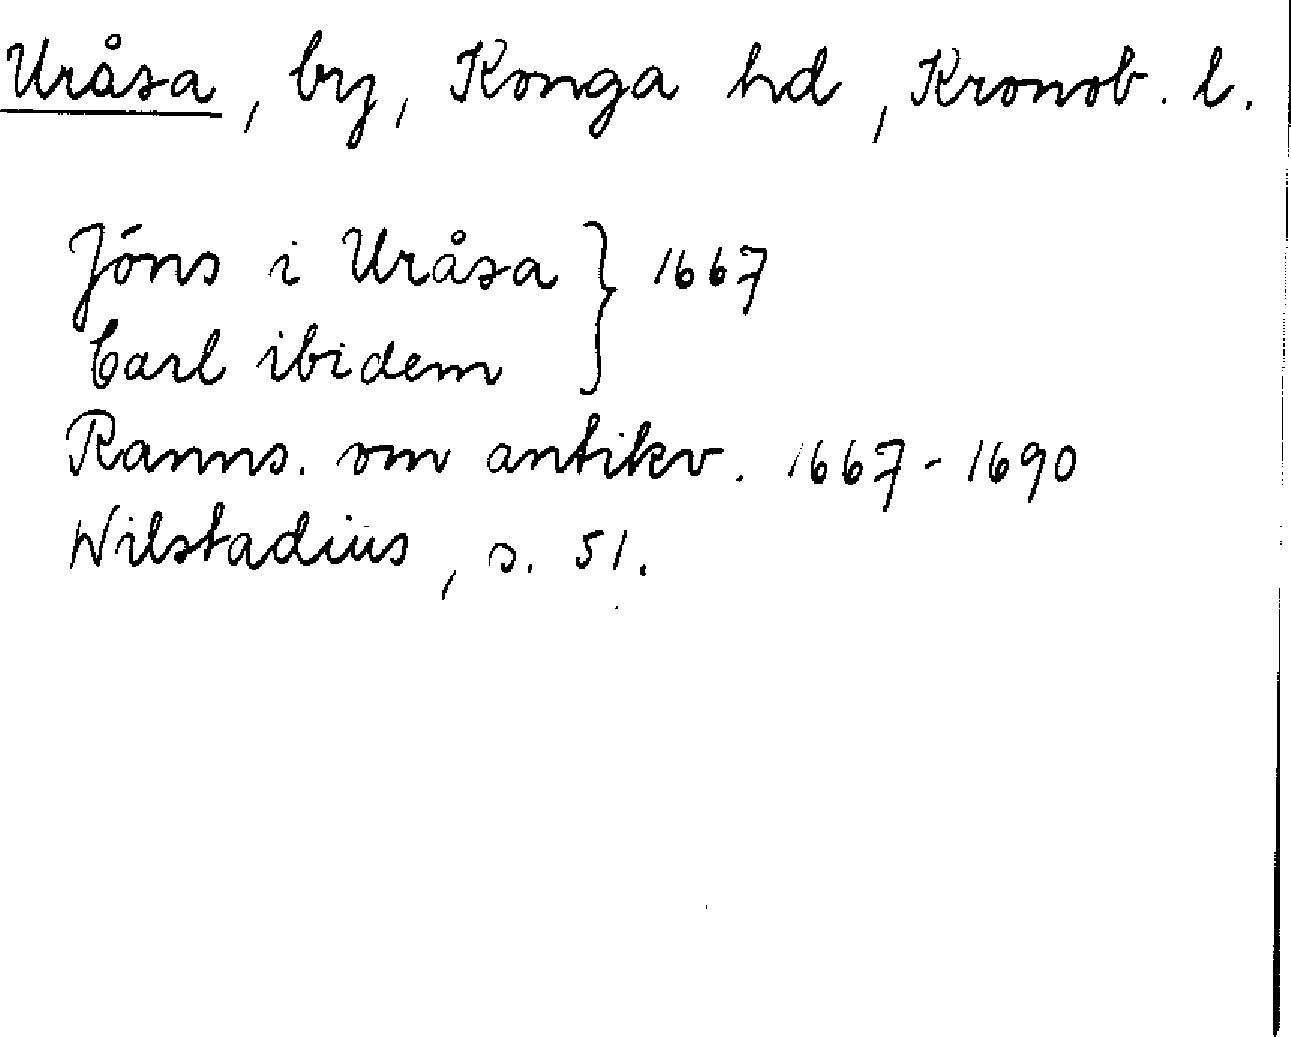 Uråsa, by, Konga hd, Kronob. l.
Jöns i Uråsa } 1667
Carl ibidem
Ranns. om antikv. 1667-1690
Wilstadius, s. 51.